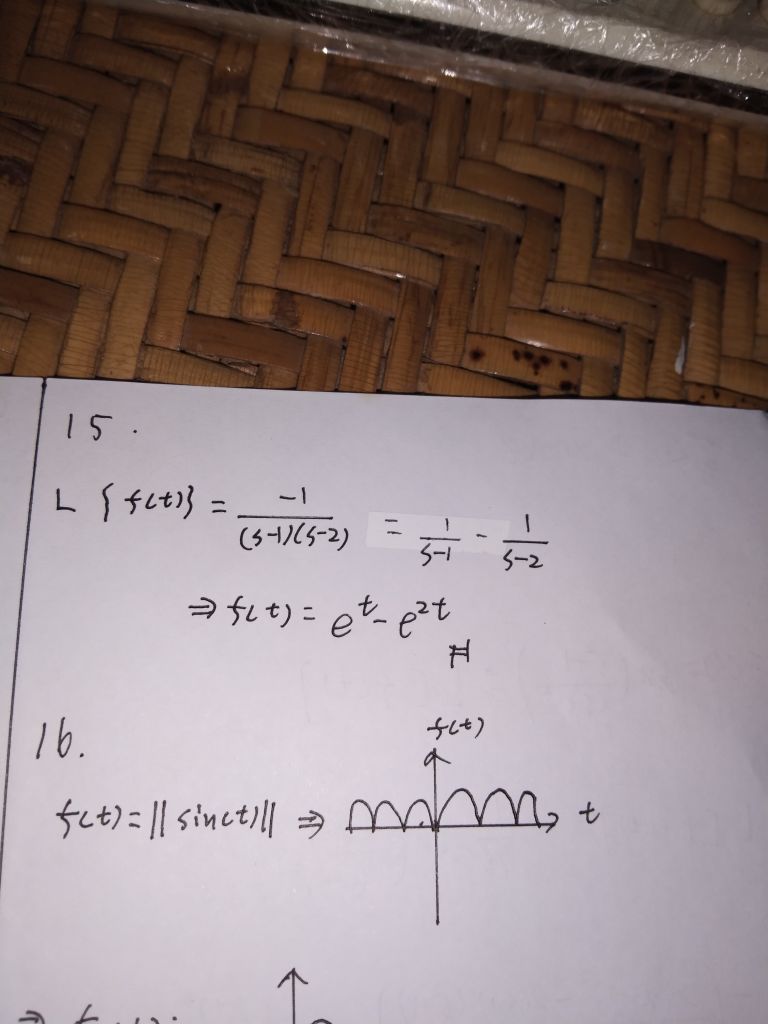 15.
L {f(t)} = -1/((s-1)(s-2)) = 1/(s-1) - 1/(s-2)
⇒ f(t) = e^t - e^2t
#
16.
f(t)
f(t) = ||sin(t)|| ⇒ t
⇒